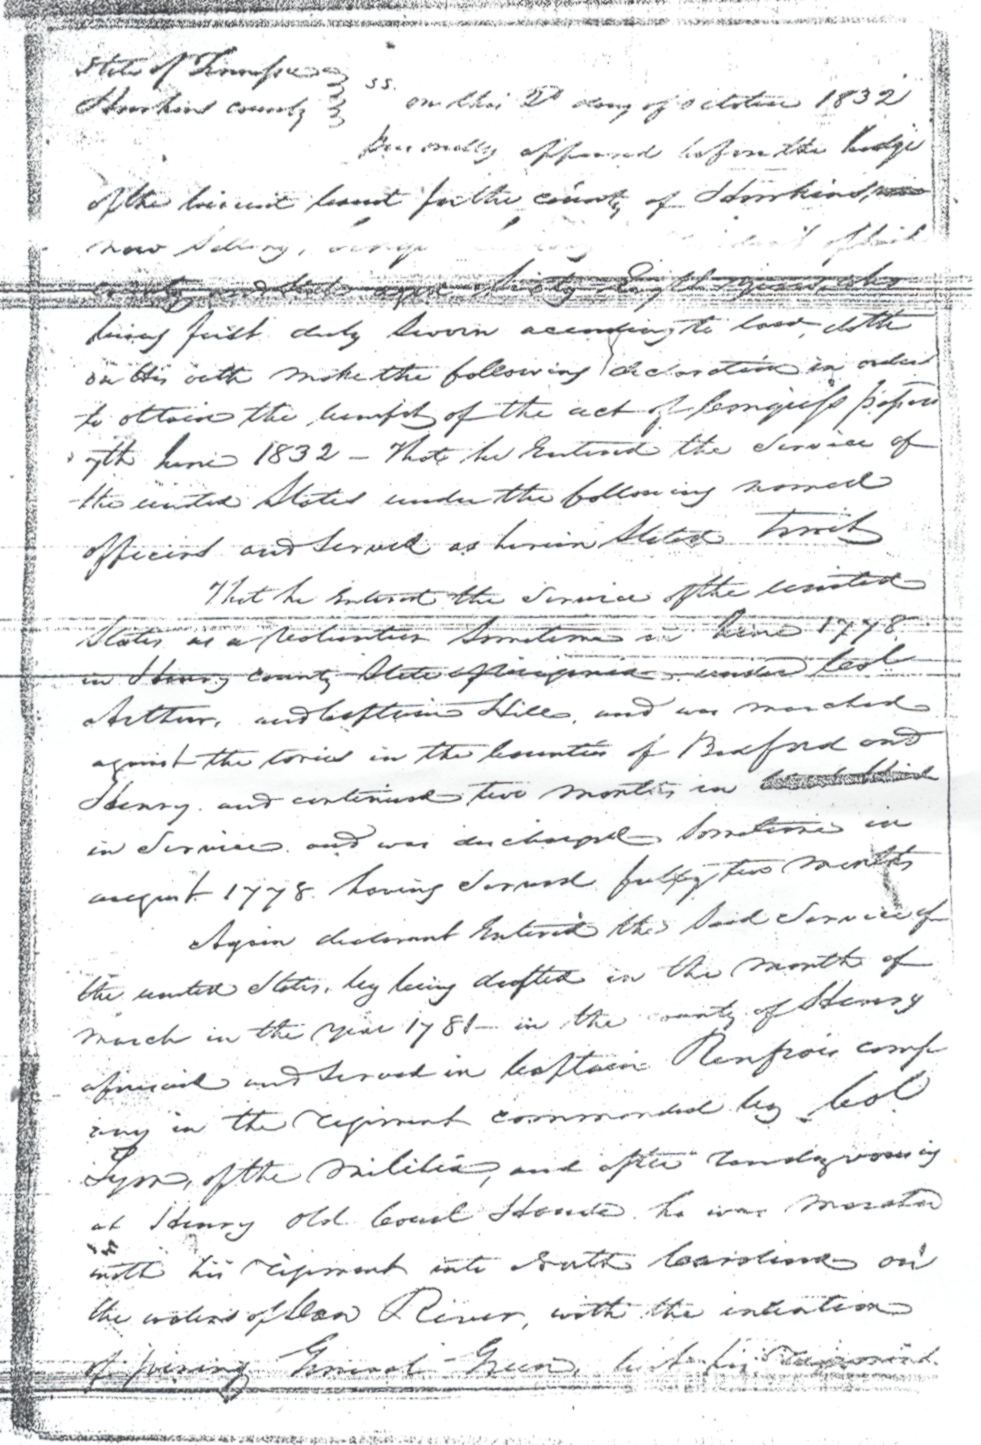 State of Tennessee
Hawkins county ss. on this 2d day of october 1832
Personally appeared before the Judge
of the Circuit Court for the county of Hawkins,
now Setting,
county and State aged Sixty Eight years, who
being first duly Sworn according to law, doth
on His oath make the following declaration in order
to obtain the benefit of the act of Congress passed
7th June 1832 – That he Entered the Service of
the united States under the following named
officers and Served as herein Stated Towit
That he Entered the Service of the united
States as a Volunteer Sometime in June 1778
in Henry county State of Virginia under Col
Arthur, and Captain Hill, and was marched
against the tories in the Counties of Bedford and
Henry. and continued two months in
in Service. and was discharged Sometime in
august 1778. having Served fully two months
Again declarant Entered the Said Service of
the united States, by being drafted in the month of
march in the year 1781 – in the county of Henry
aforesaid and Served in Captain Renfrois comp
any in the regiment commanded by Col
Lyon, of the militia, and after randezvousing
at Henry old Court House he was marched
with his regiment into North Carolina on
the waters of Dan River, with the intention
of joining General Green, but his regiment